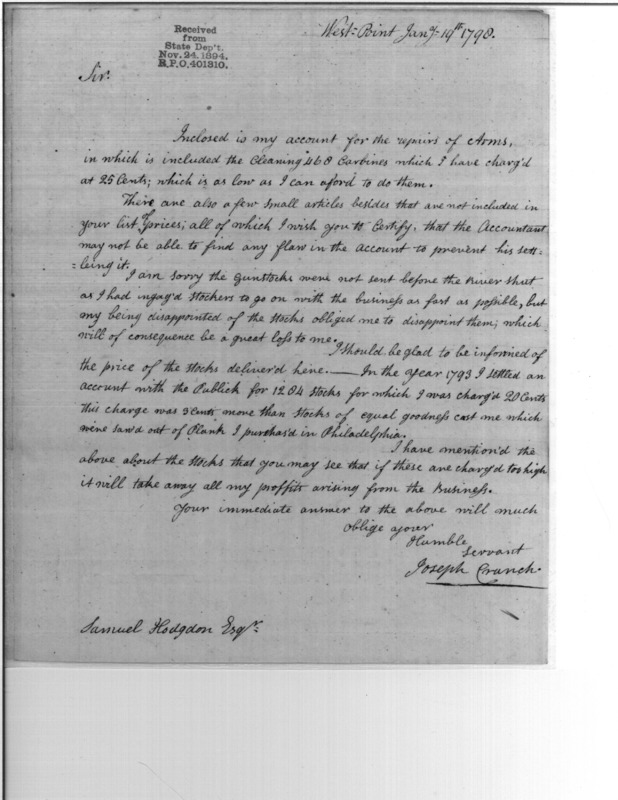 Received
from
State Dep't.
Nov. 24. 1894.
R.P.O. 401310.
West-Point Jany. 19th 1798.
Sir.
Inclosed is my account for the repairs of Arms,
in which is included the Cleaning 468 Carbines which I have charg'd
at 25 Cents; which is as low as I can aford to do them.
There are also a few small articles besides that are not included in
your list of prices; all of which I wish you to Certify, that the Accountant
may not be able to find any flaw in the account to prevent his sett-
-leing it.
I am sorry the Gunstocks were not sent before the River shut
as I had ingag'd Stockers to go on with the business as fast as possible, but
my being disappointed of the Stocks obliged me to disappoint them; which
will of consequence be a great loss to me.
I should be glad to be informed of
the price of the Stocks deliver'd here. — In the year 1793 I settled an
account with the Publick for 1284 Stocks for which I was charg'd 20 Cents
this charge was 3 Cents more than Stocks of equal goodness cost me which
were saw'd out of Plank I purchas'd in Philadelphia.
I have mention'd the
above about the Stocks that you may see that if these are charg'd too high
it will take away all my proffits arising from the Business.
Your immediate answer to the above will much
oblige your
Humble
Servant
Joseph Cranch.
Samuel Hodgdon Esqr.